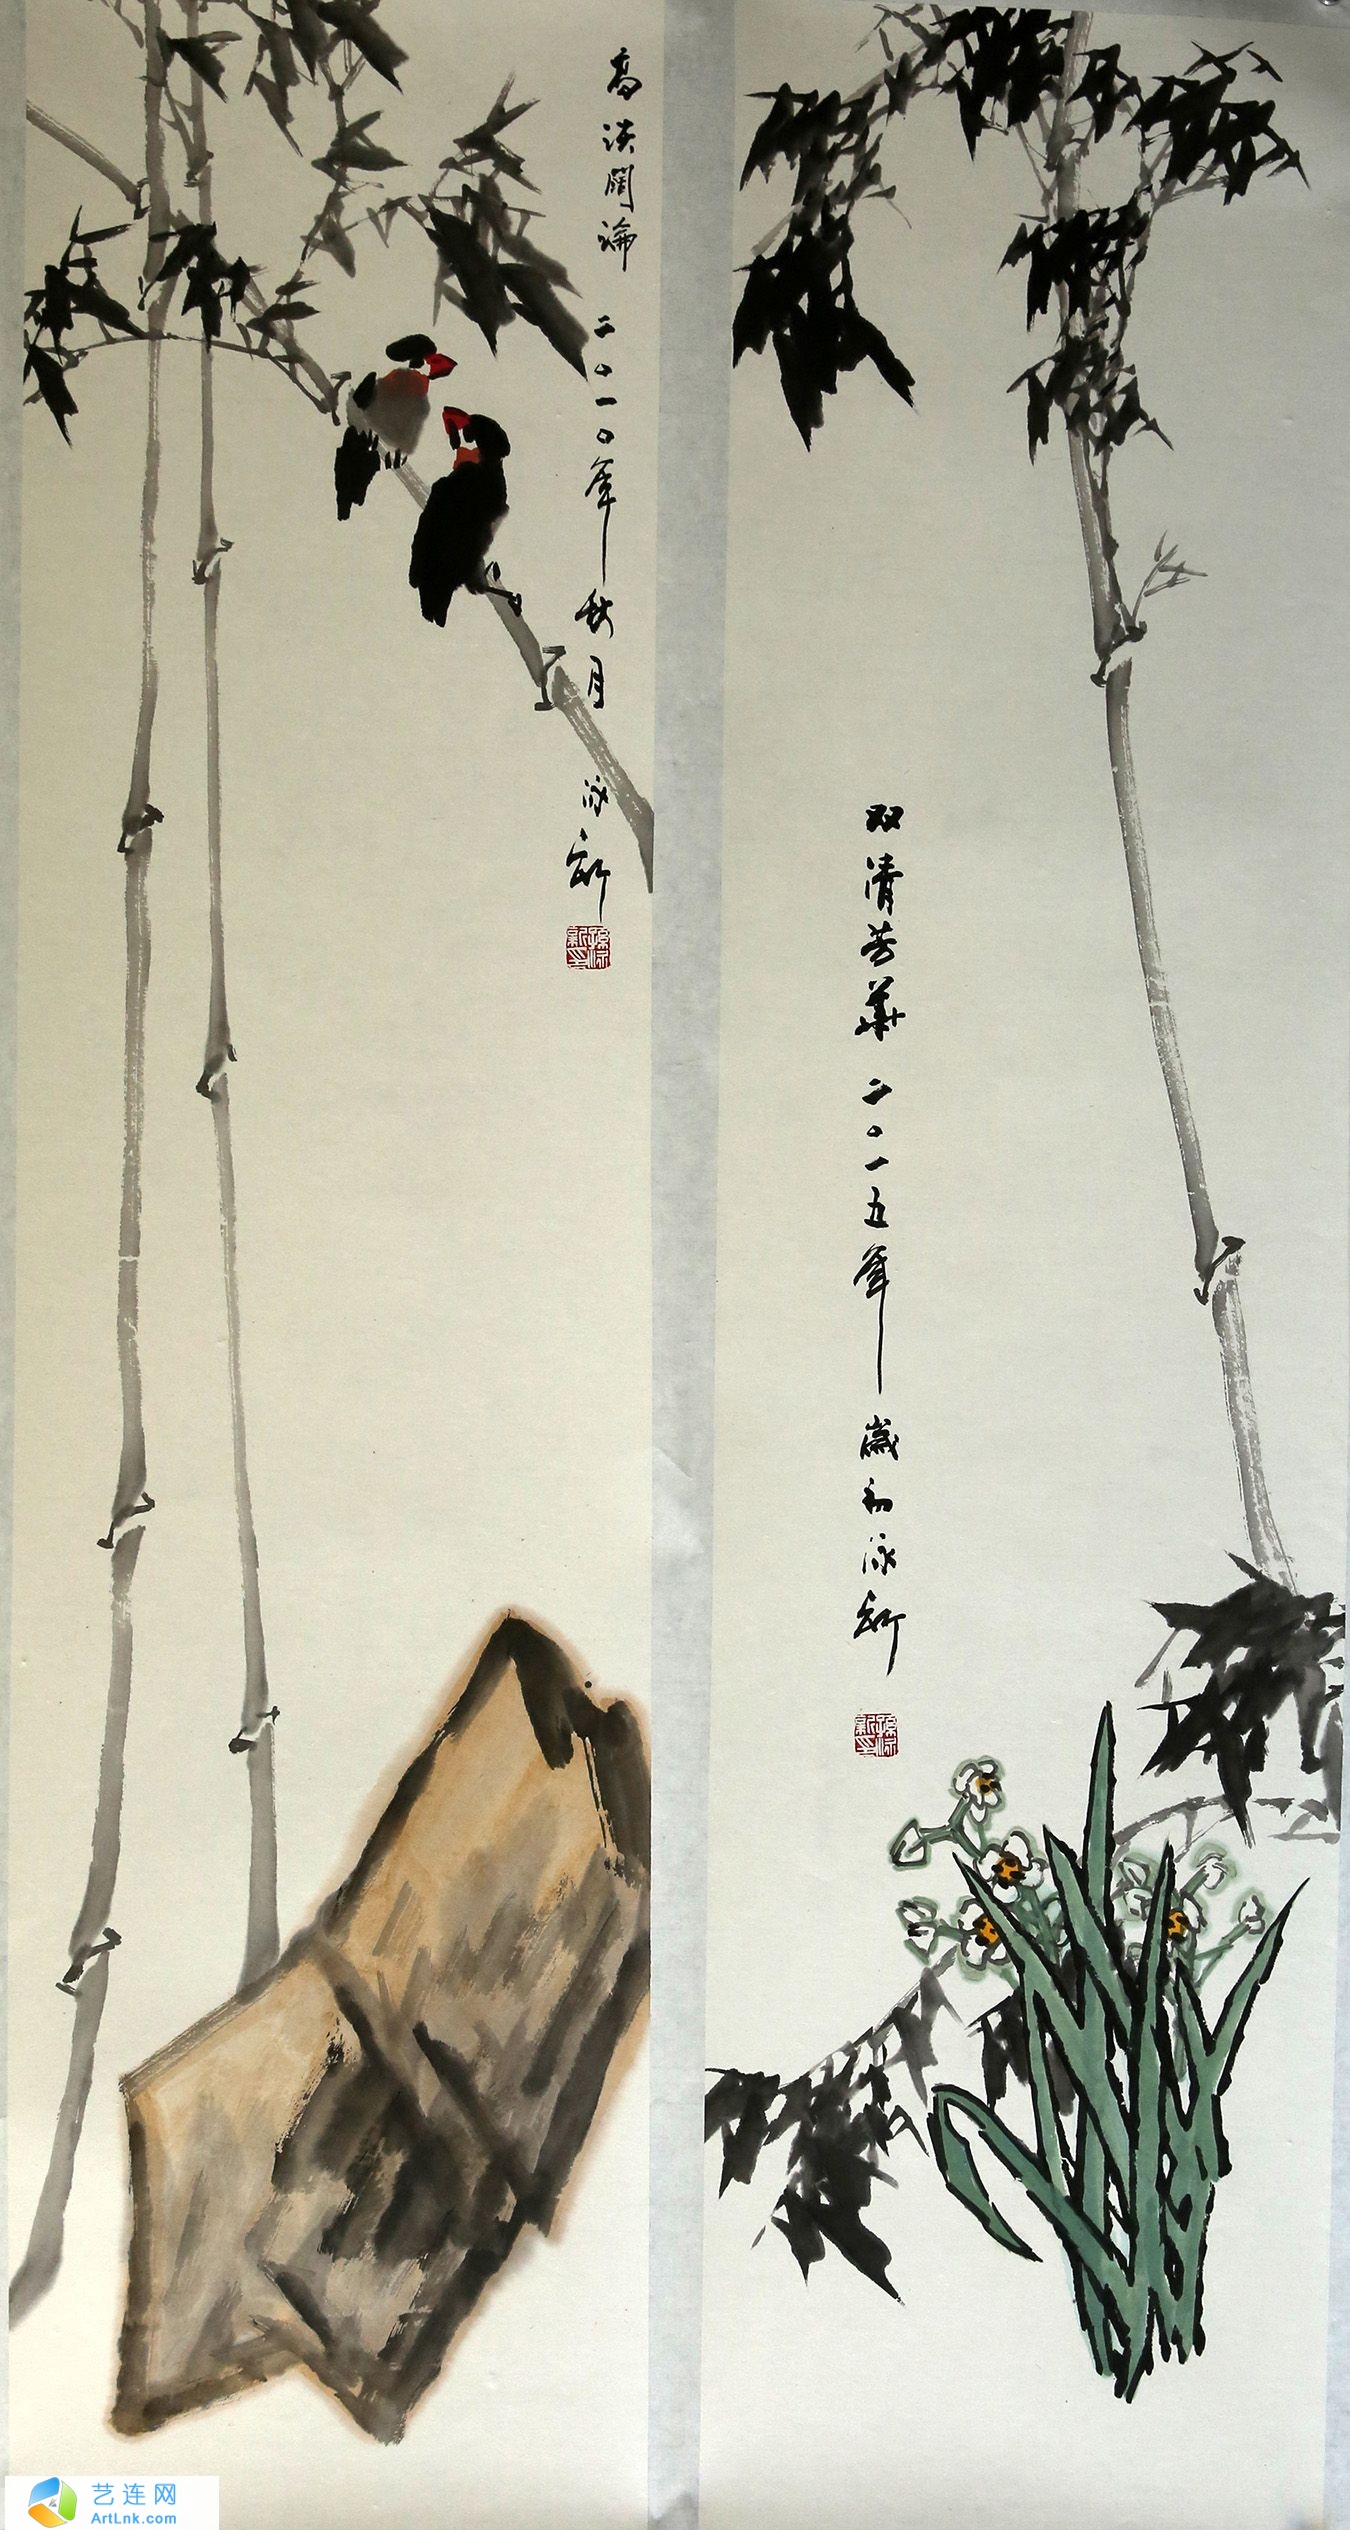 高谈阔论 二〇一〇年秋月 泳新
双清芳华 二〇一五年岁初泳新
艺连网
ArtLnk.com